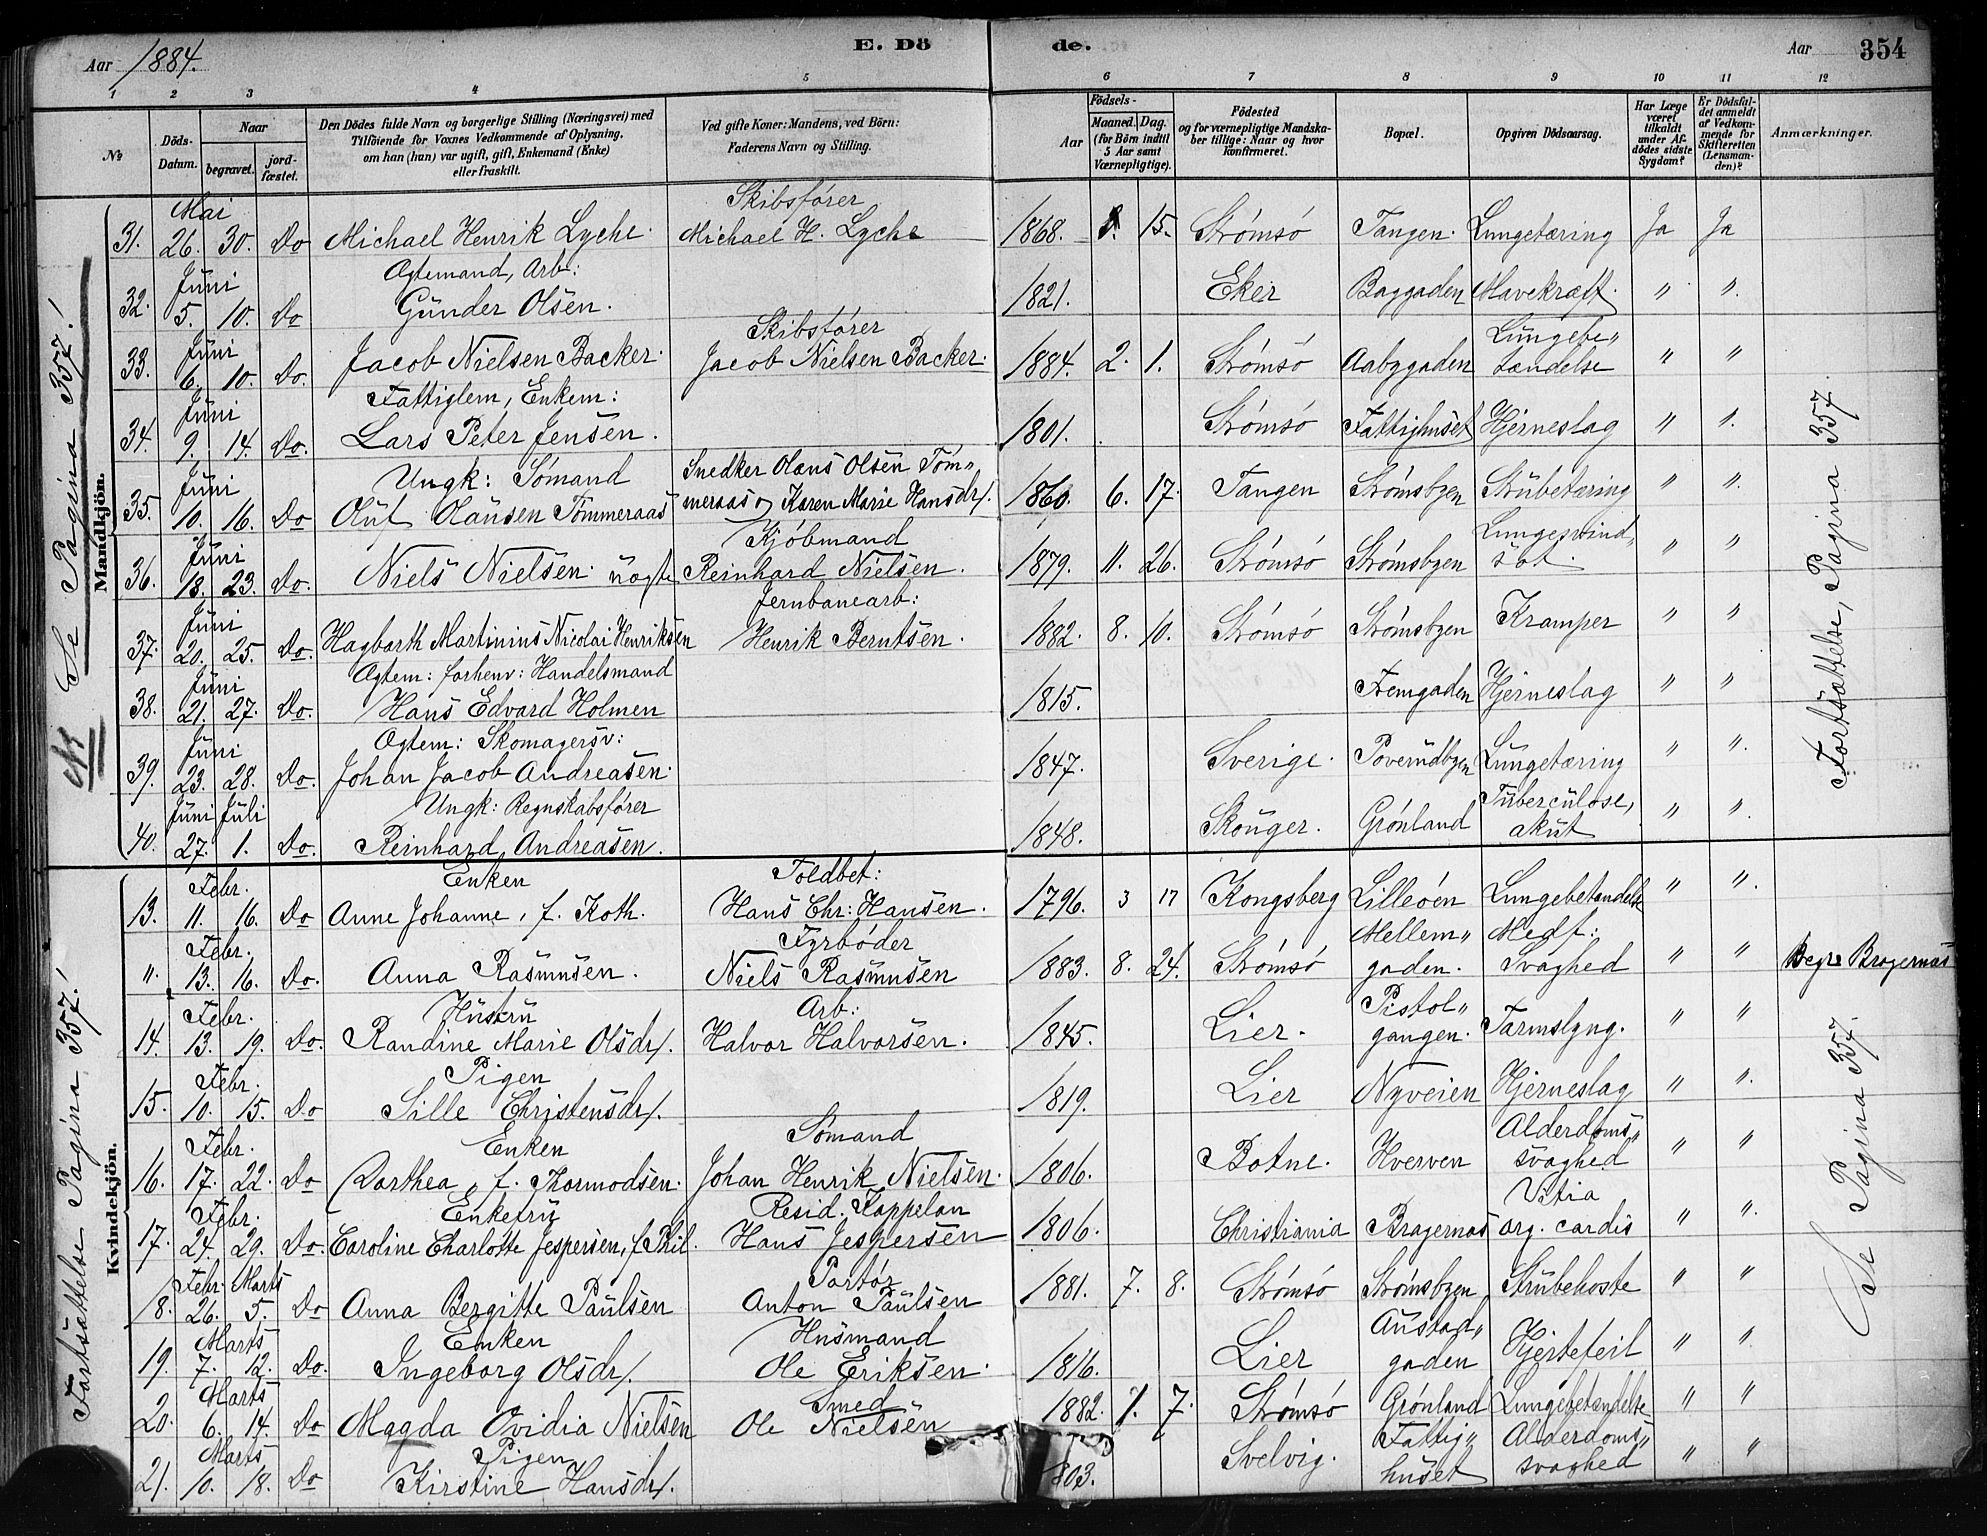 Aar 1884. E. Dö de. Aar 354
1 2 3 4 5 6 7 8 9 10 11 12
No
Döds-Datum.
Naar
begravet.
jord-fæstet.
Den Dödes fulde Navn og borgerlige Stilling (Næringsvei) med
Tilföiende for Voxnes Vedkommende af Oplysning,
om han (hun) var ugift, gift, Enkemand (Enke)
eller fraskilt.
Ved gifte Koner: Mandens, ved Börn:
Faderens Navn og Stilling.
Födsels-
Aar
Maaned. Dag.
(for Börn indtil
5 Aar samt
Værnepligtige).
Födested
og for værnepligtige Mandska-
ber tillige: Naar og hvor
konfirmeret.
Bopæl.
Opgiven Dödsaarsag.
Har Læge
været
tilkaldt
under Af-
dödes sidste
Sygdom?
Er Dödsfal-
det anmeldt
af Vedkom-
mende for
Skifteretten
(Lensman-
den)?
Anmærkninger.
NB Se Pagina 357!
Mandkjön.
Mai Skibsfører
31. 26. 30. Do Michael Henrik Lyche. Michael H. Lyche 1868. 15. Strømsø Tangen. Lungetæring Ja Ja
Juni Agtemand, Arb:
32. 5. 10. Do Gunder Olsen. 1821. Eker Baggaden Mavekræft. " "
Juni Skibsfører Lungebe"
33. 6. 10. Do. Jacob Nielsen Backer. Jacob Nielsen Backer. 1884. 2. 1. Strømsø Aabygaden tændelse " "
Juni Fattiglem, Enkem:
34. 9. 14. Do. Lars Peter Jensen. 1801. Strømsø Fattighuset Hjerneslag " "
Juni Ungk: Sømand Snedker Olaus Olsen Töm"
35. 10. 16. Do Oluf Olausen Tömmeraas meraas og Karen Marie Hansdr. 1860. 6. 17. Tangen Strømsbyen Strubetæring " "
Juni Kjøbmand Lungesvind"
36. 18. 23. Do. Niels Nielsen. uægte Reinhard Nielsen. 1879. 11. 26. Strømsø Strømsbyen sot " "
Juni Jernbanearb:
37. 20. 25. Do. Hagbarth Martinius Nicolai Henriksen Henrik Berntsen. 1882. 8. 10. Strømsø Strømsbyen Kramper " "
Juni Agtem: forhenv: Handelsmand
38. 21. 27. Do. Hans Edvard Holmen 1815. Fremgaden Hjerneslag " "
Juni Agtem: Skomagersv:
39. 23. 28. Do. Johan Jacob Andreasen. 1847. Sverige. Poverudbyen Lungetæring " "
Juni Juli Ungk: Regnskabsfører Tuberculose,
40. 27. 1. Do. Reinhard Andreasen. 1848. Skouger. Grønland akut " "
Fortsættelse, Pagina 357.
Fortsættelse Pagina 357!
Kvindekjön.
Febr. Enken Toldbet:
13. 11. 16. Do Anne Johanne, f. Koth. Hans Chr: Hansen. 1796. 3 17 Kongsberg Lilleøen Lungebetændelse " "
Febr. Fyrbøder Mellem" Medf:
" 13. 16. Do. Anna Rasmusen. Niels Rasmusen 1883. 8. 24. Strømsø gaden. Svaghed " " Begr. Bragernæs
Febr. Hustru Arb: Pistol"
14. 13. 19. Do. Randine Marie Olsdr. Halvor Halvorsen. 1845. Lier. gangen. Tarmslyng. " "
Febr. Pigen
15. 10. 15. Do Sille Christensdr. 1819. Lier Nyveien Hjerneslag " "
Febr. Enken Sømand Alderdoms"
16. 17. 22. Do Dorthea, f. Thormodsen. Johan Henrik Nielsen. 1806. Botne. Hverven svaghed " "
Febr. Enkefru Resid. Kappelan Vitia
17. 24. 29. Do. Caroline Charlotte Jespersen, f. Phil. Hans Jespersen 1806. Christiania Bragernæs org. cardis " "
Febr. Marts Portør
18. 26. 5. Do Anna Bergitte Paulsen Anton Paulsen 1881. 7. 8. Strømsø Strømsbyen Strubehoste " "
Marts Enken Husmand Austad"
19. 7. 12. Do. Ingeborg Olsdr. Ole Eriksen. 1816. Lier gaden Hjertefeil " "
Marts Smed
20. 6. 14. Do Magda Ovidia Nielsen Ole Nielsen 1882. 1. 7. Strømsø Grønland Lungebetændelse " "
Marts Pigen Fattig" Alderdoms"
21. 10. 18. Do Kirstine Hansdr. 1803. Svelvig. huset svaghed " "
Se Pagina 357.